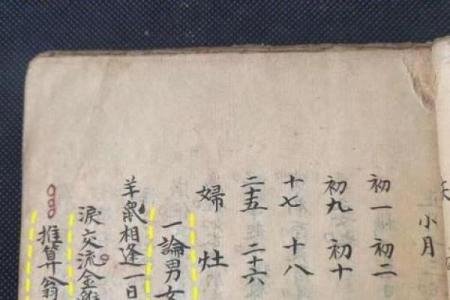 小月
初一 初二
初九 初十
十七 十八
二十五 二十六
婦 灶
一論男女
羊鼠相逢一
淚交流金
推算翁